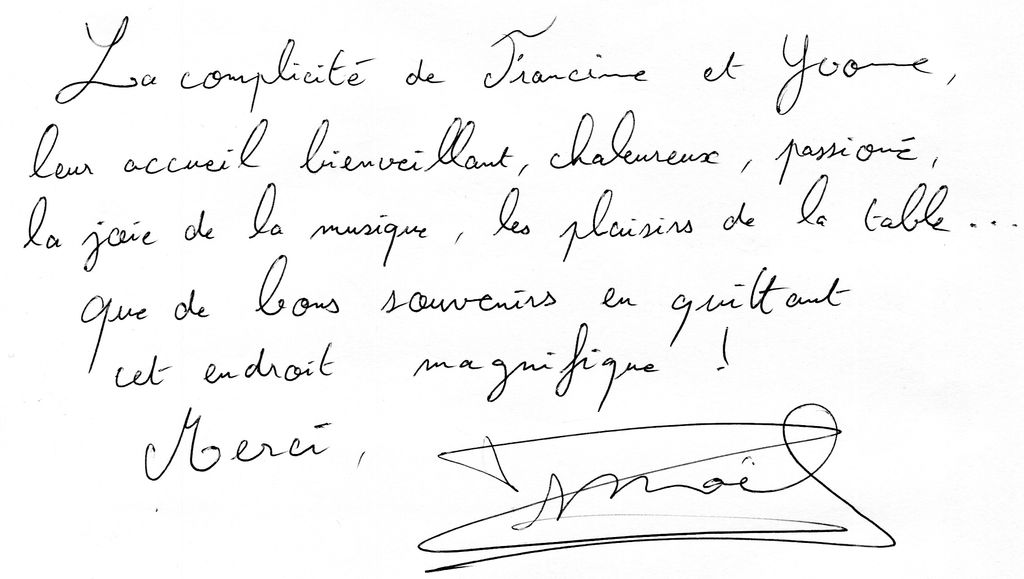 La complicité de Francine et Yvonne,
leur accueil bienveillant, chaleureux, passioné,
la joie de la musique, les plaisirs de la table...
que de bons souvenirs en quittant
cet endroit magnifique !
Merci,